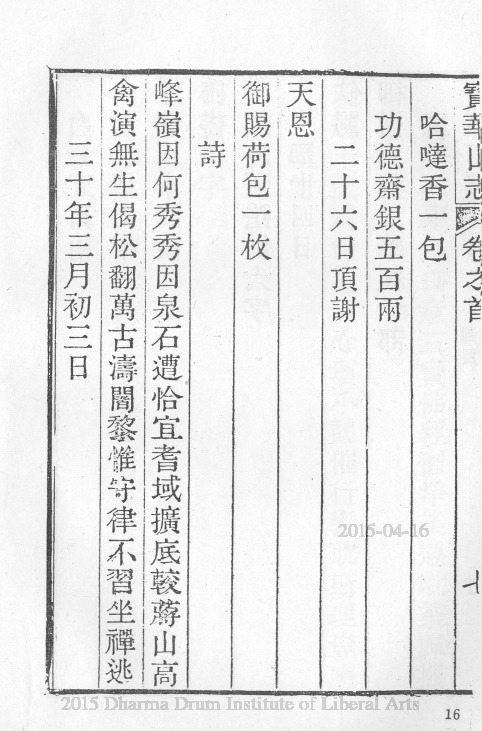 寶華山志 卷之首
哈噠香一包
功德齋銀五百兩
二十六日頂謝
天恩
御賜荷包一枚
詩
峰嶺因何秀秀因泉石遭恰宜耆域擴底較蔣山高
禽演無生偈松翻萬古濤闍黎惟守律不習坐禪逃
三十年三月初三日
2015-04-16
2015 Dharma Drum Institute of Liberal Arts
16